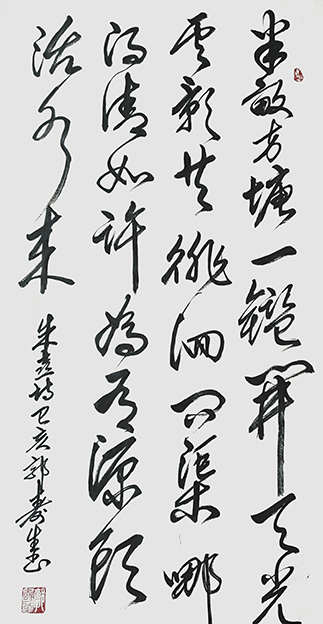 半畝方塘一鑑開天光
雲影共徘徊问渠哪
得清如許為有源頭
活水来
朱熹詩己亥郭壽生書